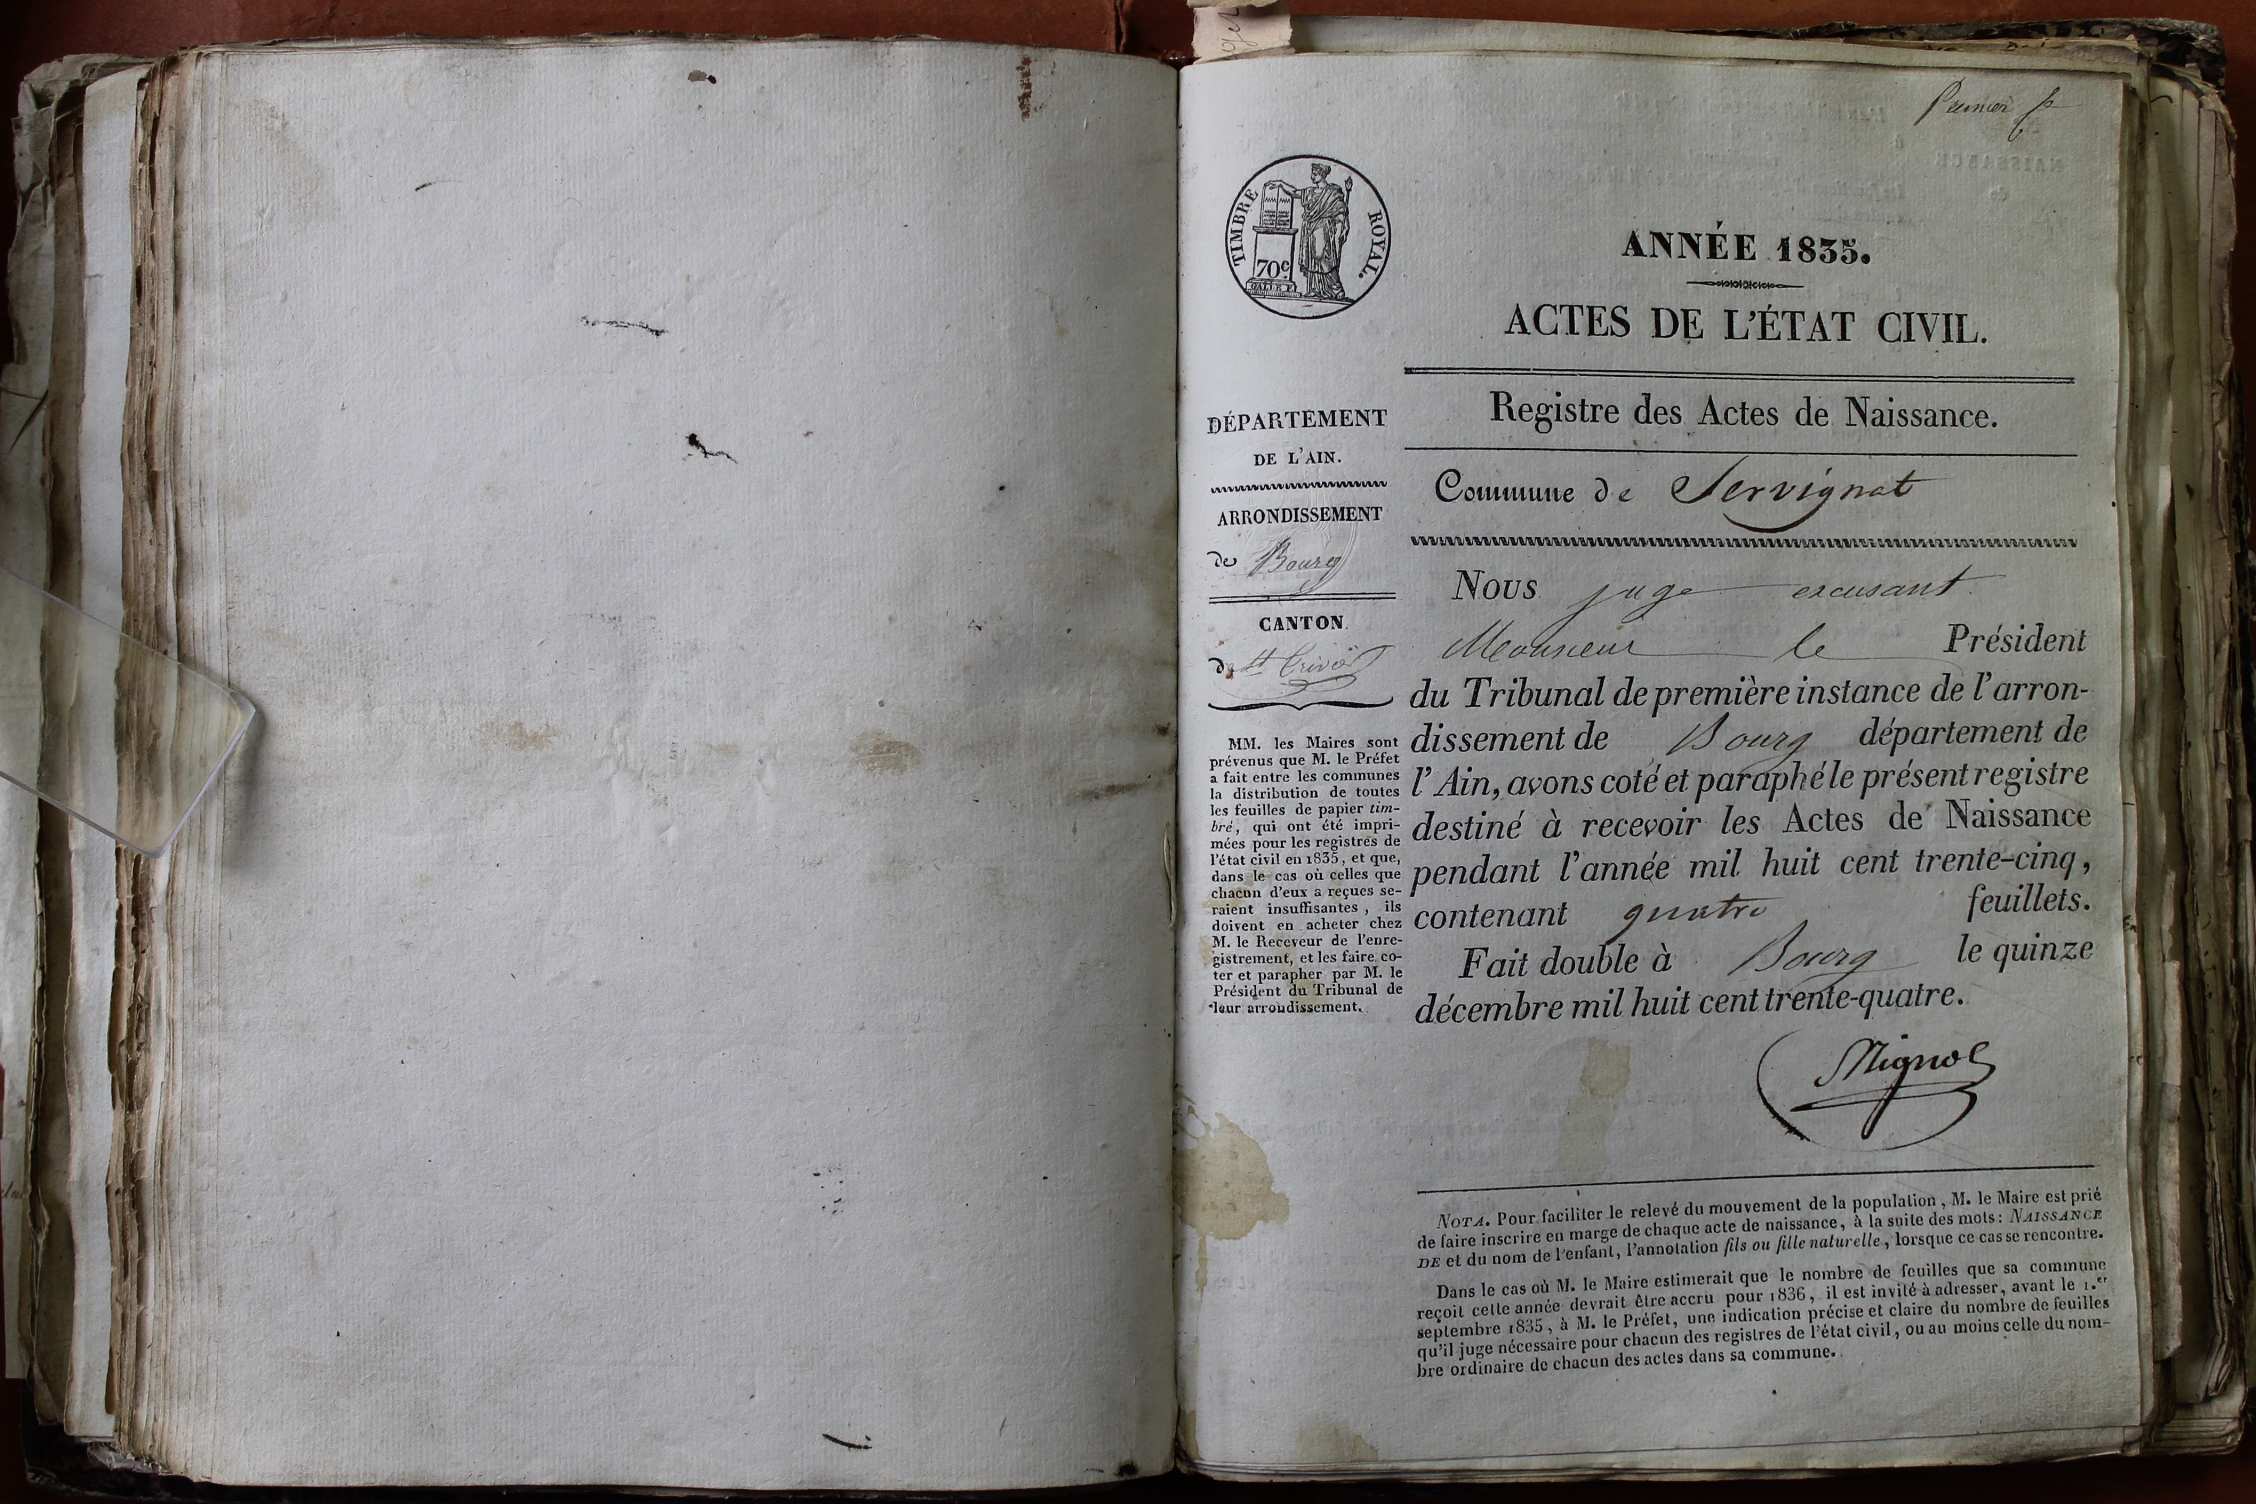 Premier
TIMBRE ROYAL.
70c.
ANNÉE 1835.
ACTES DE L'ÉTAT CIVIL.
Registre des Actes de Naissance.
Commune de Servignat
DÉPARTEMENT
DE L'AIN.
ARRONDISSEMENT
de Bourg
CANTON
de St Trivier
MM. les Maires sont
prévenus que M. le Préfet
a fait entre les communes
la distribution de toutes
les feuilles de papier tim-
bré, qui ont été impri-
mées pour les registres de
l'état civil en 1835, et que,
dans le cas où celles que
chacun d'eux a reçues se-
raient insuffisantes, ils
doivent en acheter chez
M. le Receveur de l'enre-
gistrement, et les faire co-
ter et parapher par M. le
Président du Tribunal de
leur arrondissement.
Nous juge excusant
Monsieur le Président
du Tribunal de première instance de l'arron-
dissement de Bourg département de
l'Ain, avons coté et paraphé le présent registre
destiné à recevoir les Actes de Naissance
pendant l'année mil huit cent trente-cinq,
contenant quatre feuillets.
Fait double à Bourg le quinze
décembre mil huit cent trente-quatre.
NOTA. Pour faciliter le relevé du mouvement de la population, M. le Maire est prié
de faire inscrire en marge de chaque acte de naissance, à la suite des mots: NAISSANCE
DE et du nom de l'enfant, l'annotation fils ou fille naturelle, lorsque ce cas se rencontre.
Dans le cas où M. le Maire estimerait que le nombre de feuilles que sa commune
reçoit cette année devrait être accru pour 1836, il est invité à adresser, avant le 1.er
septembre 1835, à M. le Préfet, une indication précise et claire du nombre de feuilles
qu'il juge nécessaire pour chacun des registres de l'état civil, ou au moins celle du nom-
bre ordinaire de chacun des actes dans sa commune.